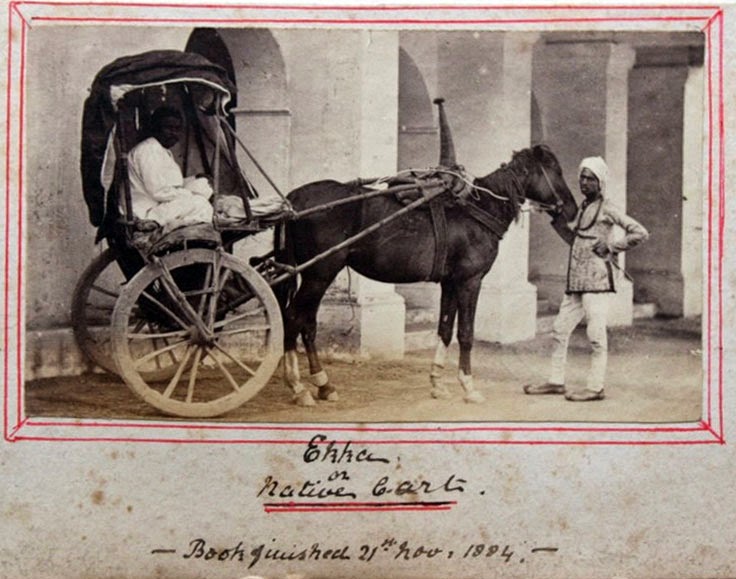 Ekka.
or
Native Cart.
— Book finished 21st Nov. 1884. —